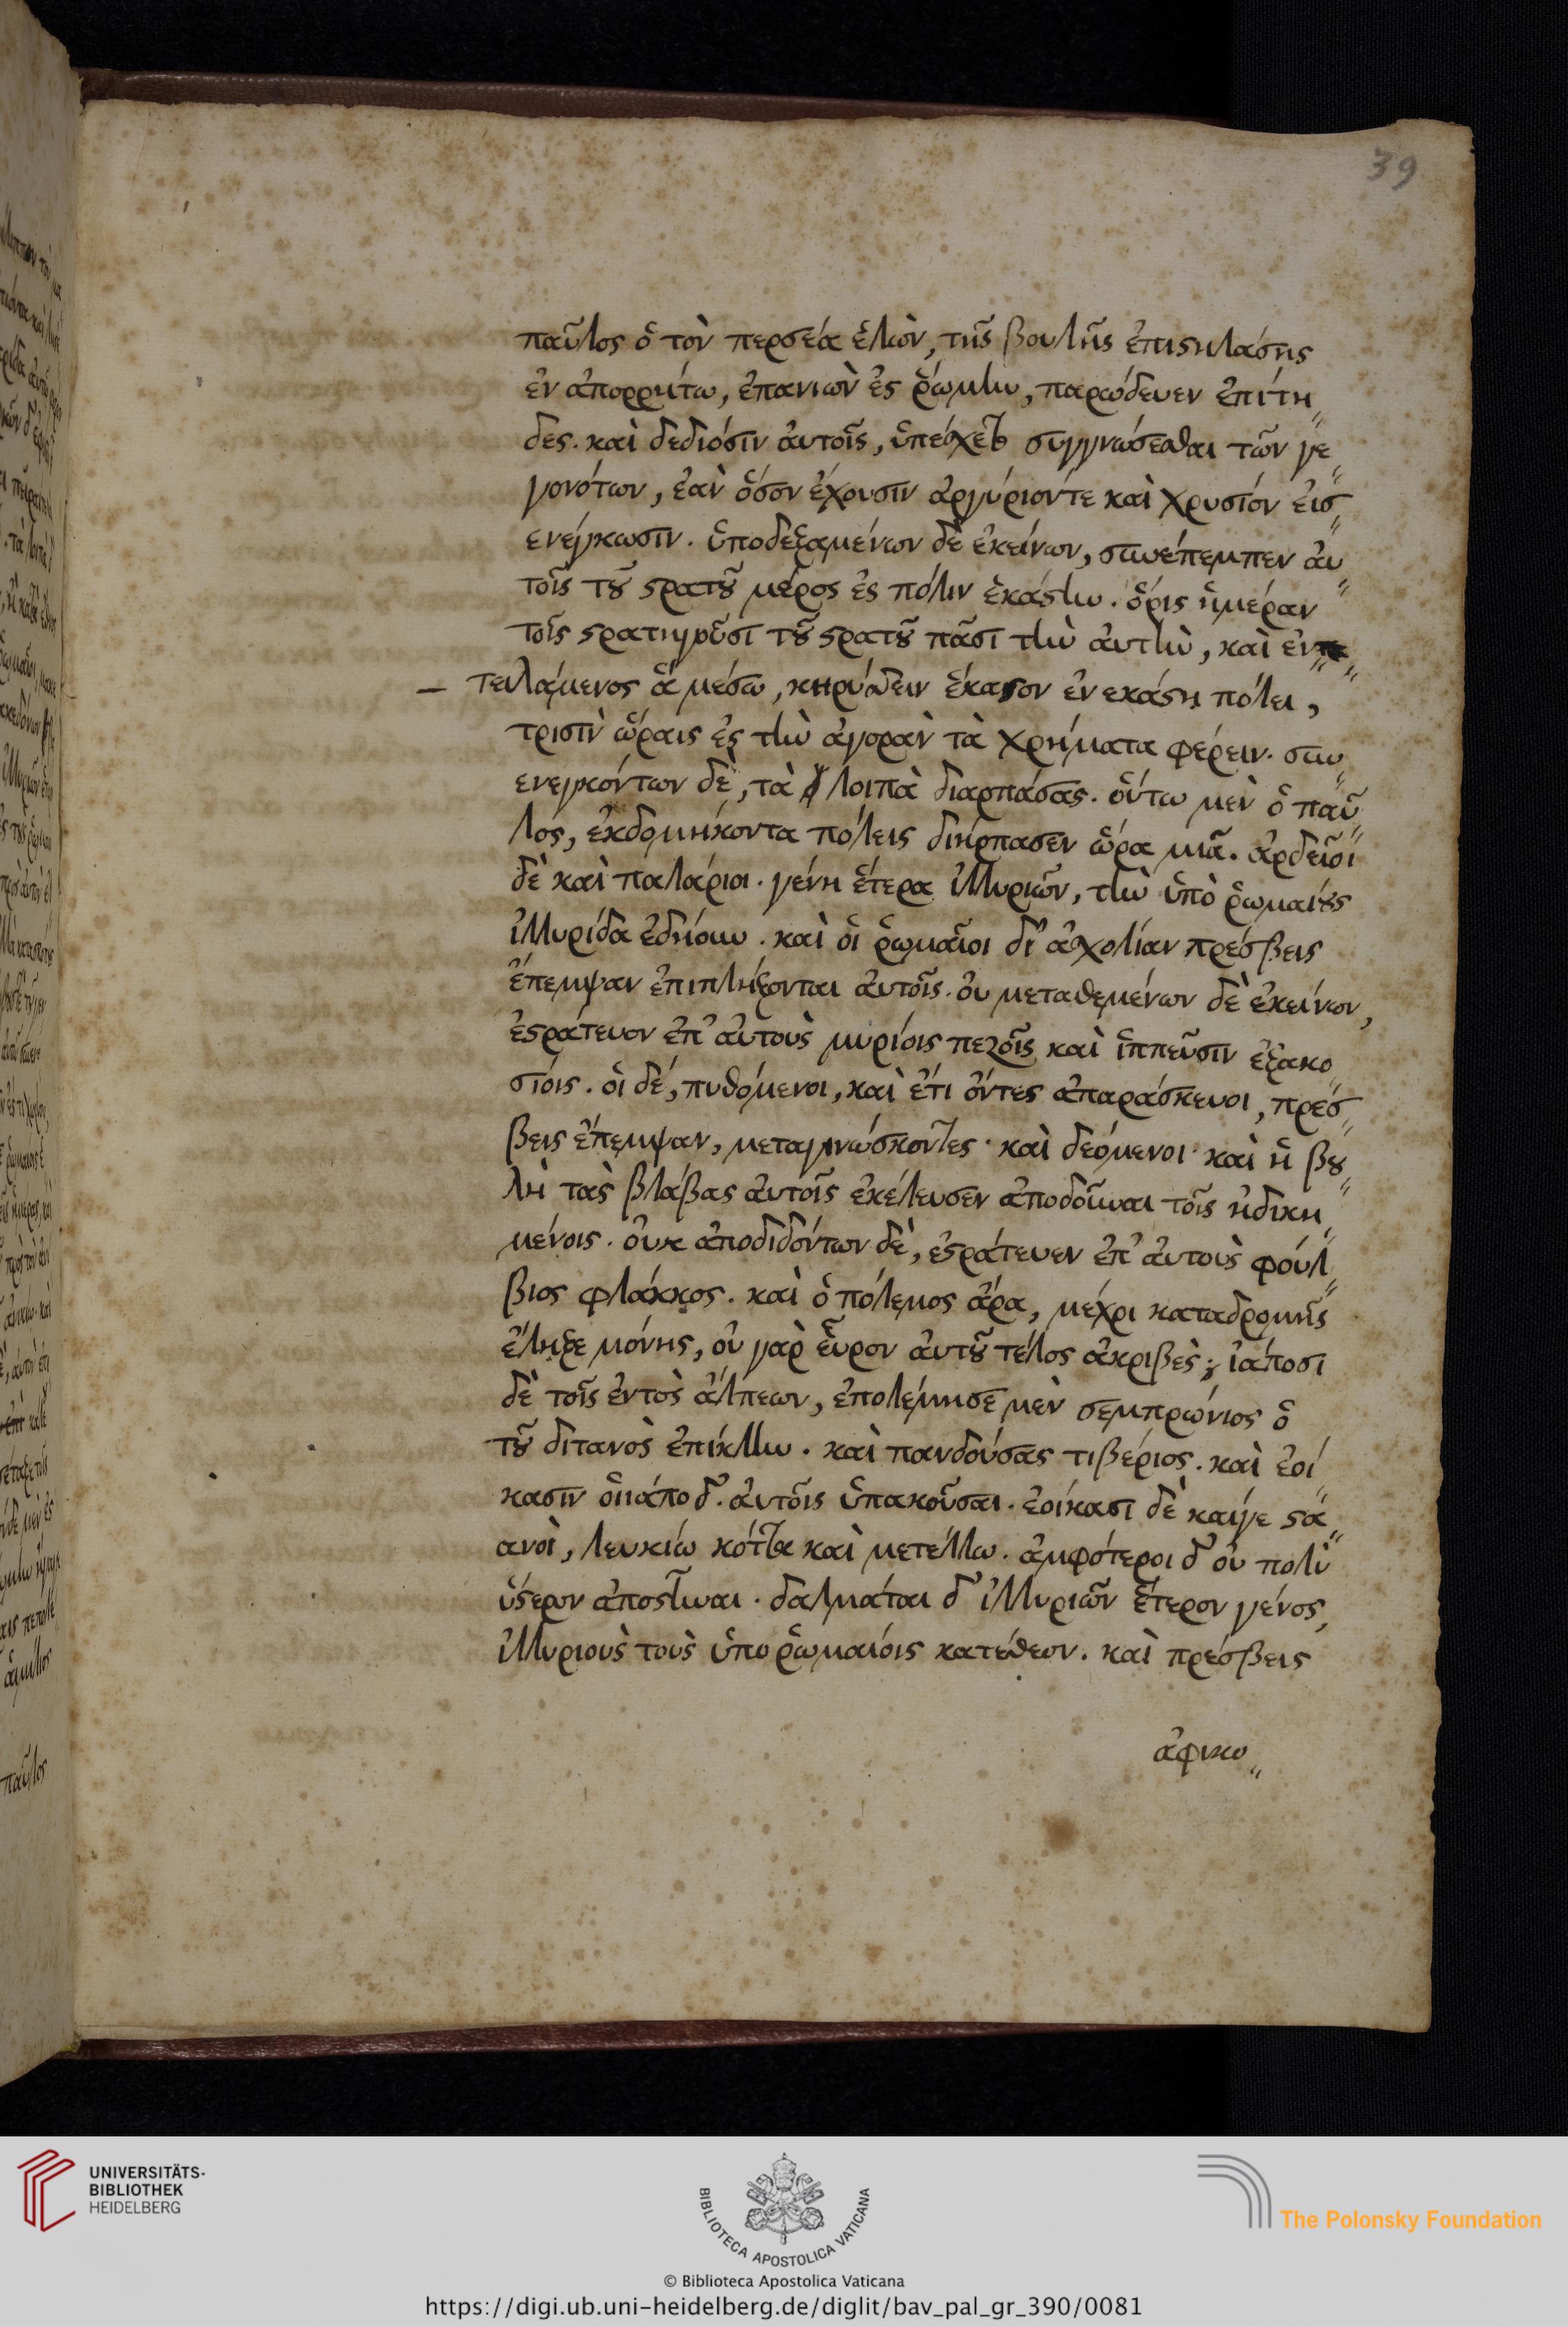 39
παῦλος ὁ τὸν περσέα ἑλὼν, τῆς βουλῆς ἐπιστηλάσης
ἐν ἀπορρήτω, ἐπανιὼν ἐς ῥώμην, παρώδευεν ἐπίτη„
δες. καὶ δεδιόσιν αὐτοῖς, ὑπέσχετο συγγνώσεσθαι τῶν γε„
γονότων, ἐὰν ὅσον ἔχουσιν ἀργύριόντε καὶ χρυσίον εἰσ„
ενέγκωσιν. ὑποδεξαμένων δὲ ἐκείνων, συνέπεμπεν αὐ„
τοῖς τοῦ στρατοῦ μέρος ἐς πόλιν ἑκάστην. ὅρις ἡμέραν
τοῖς στρατηγοῦσι τοῦ στρατοῦ πᾶσι τὴν αὐτὴν, καὶ ἐν„
– τειλάμενος ἅ μέσω, κηρύσσειν ἕκαστον ἐν εκάστη πόλει,
τρισὶν ὥραις ἐς τὴν ἀγορὰν τὰ χρήματα φέρειν. συν„
ενεγκόντων δὲ, τὰ λοιπὰ διαρπάσας. οὕτω μὲν ὁ παῦ„
λος, ἐκδομήκοντα πόλεις διήρπασεν ὥρα μιᾶ. ἀρδεῖοι
δὲ καὶ παλάριοι. γένη ἕτερα ἰλλυριῶν, τὴν ὑπὸ ῥωμαίους
ἰλλυρίδα ἐδήουν. καὶ οἱ ῥωμαῖοι δι' ἀσχολίαν πρέσβεις
ἔπεμψαν ἐπιπλήξονται αὐτοῖς. οὐ μεταθεμένων δὲ ἐκείνων,
ἐστράτευον ἐπ' αὐτοὺς μυρίοις πεζοῖς καὶ ἱππεῦσιν ἑξακο„
σίοις. οἱ δέ, πυθόμενοι, καὶ ἔτι ὄντες ἀπαράσκευοι, πρέσ„
βεις ἔπεμψαν, μεταγινώσκοντες. καὶ δεόμενοι. καὶ ἡ βου„
λὴ τὰς βλάβας αὐτοῖς ἐκέλευσεν ἀποδοῦναι τοῖς ἠδικη„
μένοις. οὐκ ἀποδιδόντων δὲ, ἐστράτευεν ἐπ' αὐτοὺς φούλ„
βιος φλάκκος. καὶ ὁ πόλεμος ἄρα, μέχρι καταδρομῆς
ἔληξε μόνης, οὐ γὰρ εὗρον αὐτοῦ τέλος ἀκριβὲς; ἰάποσι
δὲ τοῖς ἐντὸς ἄλπεων, ἐπολέμησε μὲν σεμπρώνιος ὁ
τοῦ διτανὸς ἐπίκλην. καὶ πανδούσας τιβέριος. καὶ ἐοί„
κασιν ὁιιάποδ. αὐτοῖς ὑπακοῦσαι. ἐοίκασι δὲ καίγε στα„
ανοὶ, λευκίω κόττα καὶ μετέλλω. ἀμφότεροι δ' οὐ πολὺ
ὕστερον ἀποστῆναι. δαλμάται δ' ἰλλυριῶν ἕτερον γένος,
ἰλλυριοὺς τοὺς ὑπο ῥωμαίοις κατέθεον. καὶ πρέσβεις
ἀφικο„
UNIVERSITÄTS-
BIBLIOTHEK
HEIDELBERG
BIBLIOTECA APOSTOLICA VATICANA
The Polonsky Foundation
© Biblioteca Apostolica Vaticana
https://digi.ub.uni-heidelberg.de/diglit/bav_pal_gr_390/0081